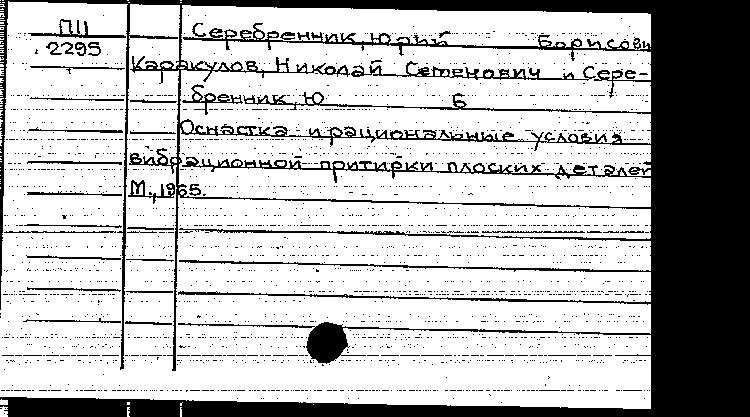 П11 Серебренник, Юрий Борисови
2295
Каракулов, Николай Семенович и Сере-
бренник, Ю Б
Оснастка и рациональные условия
вибрационной притирки плоских деталей
М., 1965.